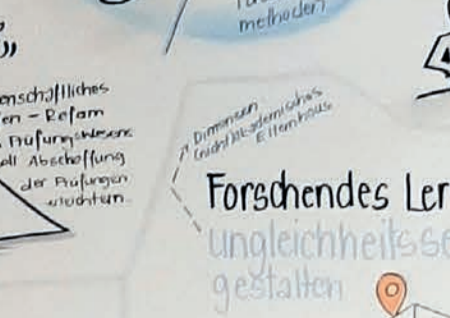 methoden?
enschaftliches
en - Reform
Prüfungswesens
all Abschaffung
der Prüfungen
Dimension
(nicht)akademisches
Elternhaus
Forschendes Ler
ungleichheitsse
gestalten